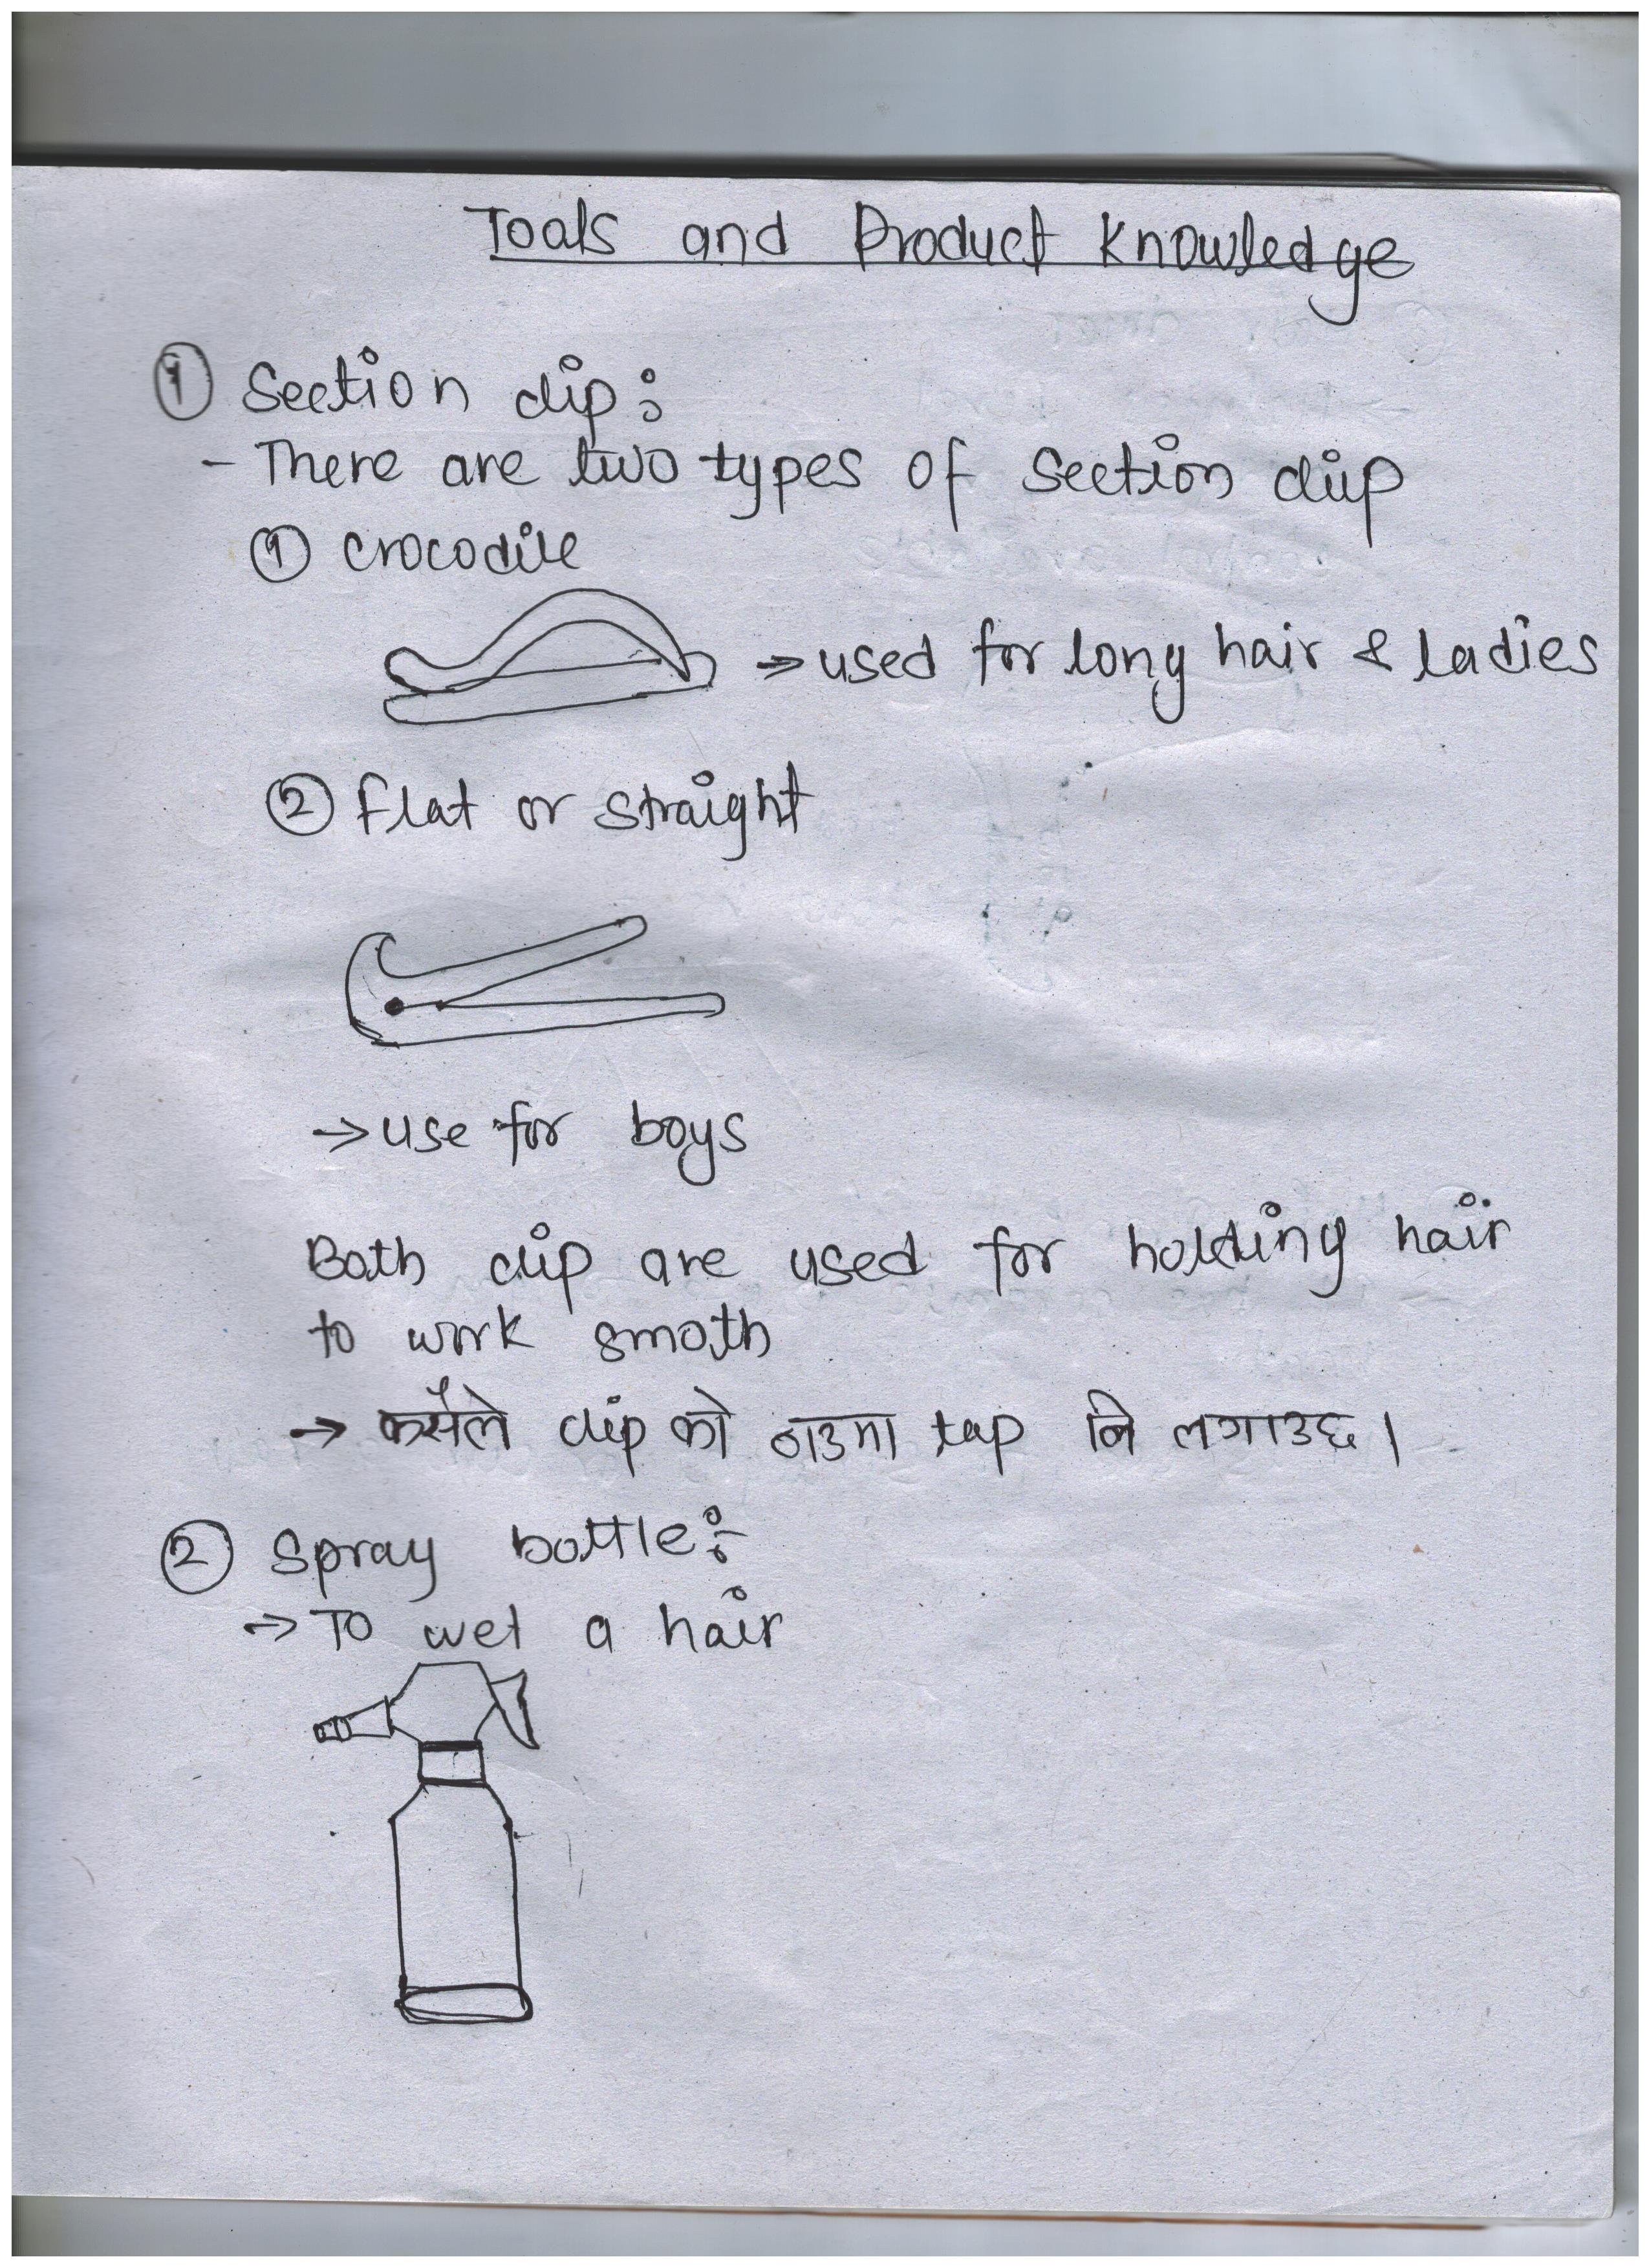 Tools and Product Knowledge
① Section clip:
- There are two types of section clip
① crocodile
→ used for long hair & ladies
② flat or straight
→ use for boys
Both clip are used for holding hair
to work smoth
→ कसैले clip को ठाउमा tap नि लगाउछ।
② Spray bottle:-
→ To wet a hair